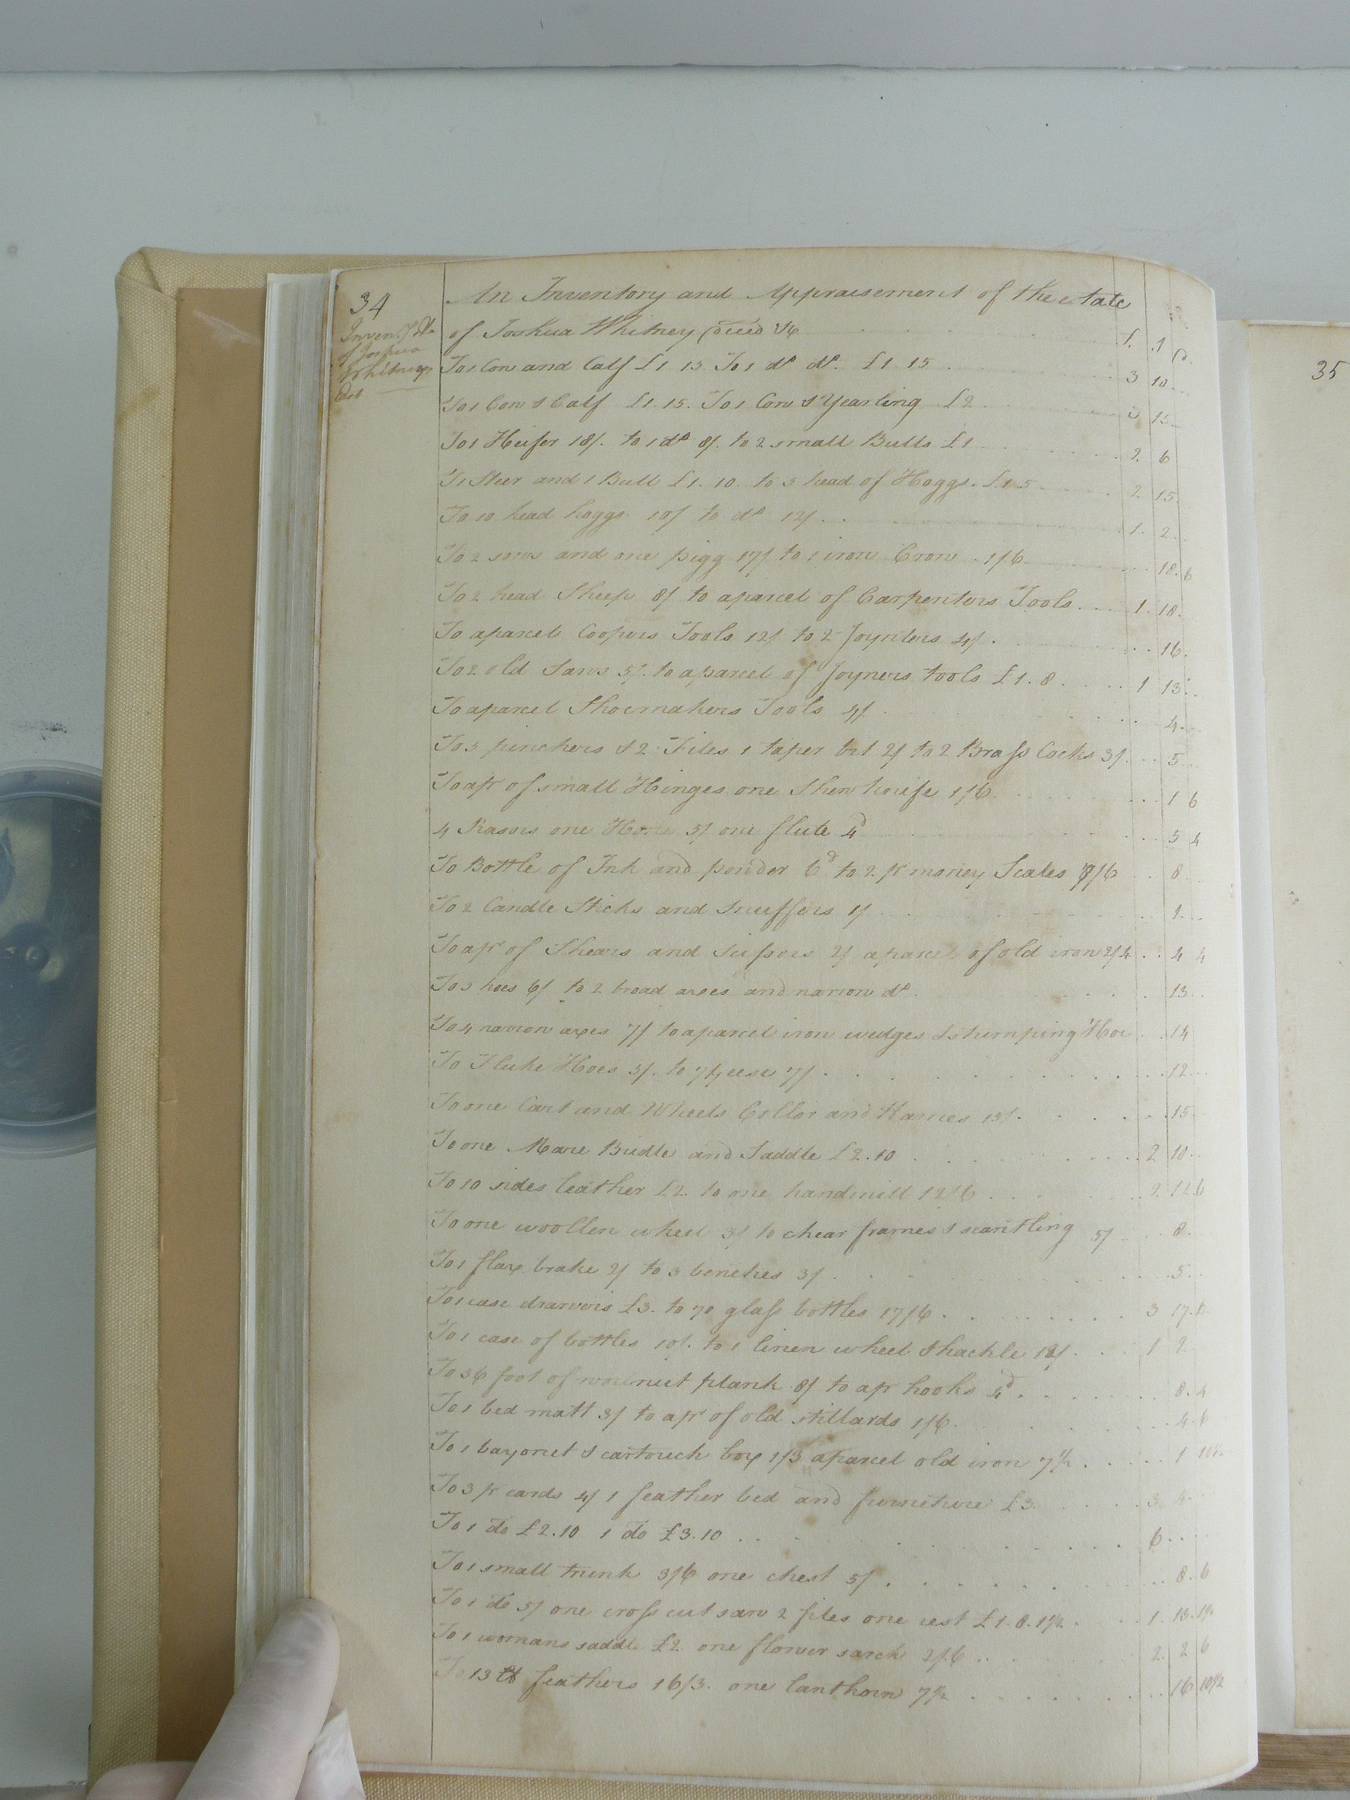 34
35
Inventy &c
of Joshua
Whitneys
Est
An Inventory and Appraisement of the Estate
of Joshua Whitney deced Vis
£. s d.
To 1 Cow and Calf £1 15 To 1 do do. £1.15 3 10
To 1 Cow & Calf £1.15. To 1 Cow & Yearling £2 3 15
To 1 Heifer 18/. to 1 do 8/. to 2 small Bulls £1 2 6
To 1 Steer and 1 Bull £1.10 to 3 head of Hoggs. £1 5 2 15
To 10 head hoggs 10/ to do 12/ 1. 2
To 2 sows and one pigg 17/ to 1 iron Crow 1/6 18.6
To 2 head Sheep 8/ to a parcel of Carpenters Tools 1.18
To a parcel Coopers Tools 12/ to 2 Joynters 4/ 16.
To 2 old Saws 5/. to a parcel of Joyners tools £1.8 1 13
To a parcel Shoemakers Tools 4/ 4
To 3 pinchers & 2 Files 1 taper bit 2/ to 2 Brass Cocks 3/ 5
To a pr of small Hinges one 1/6 1 6
4 Rasors one Hone 5/ one flute 4d 5 4
To Bottle of Ink and powder 6d to 2 pr money Scales 7/6 8
To 2 Candle Sticks and Snuffers 1/ 1
To a pr of Shears and Sissors 2/ a parcel of old iron 2/4 4 4
To 3 hoes 6/ to 2 broad axes and narrow do 13
To 4 narrow axes 7/ to a parcel iron wedges & stumping Hoe 14
To Fluke Hoes 5/. to 7 7/ 12
To one Cart and Wheels Collor and Hames 15/ 15
To one Mare Bridle and Saddle £2.10 2 10
To 10 sides leather £2. to one handmill 12/6 2 12 6
To one woollen wheel 3/ to chear frames & scantling 5/ 8
To 1 flax brake 2/ to 3 benches 3/ 5
To 1 case drawers £3. to 70 glass bottles 17/6 3 17.6
To 1 case of bottles 10/. to 1 linen wheel & hackle 12/ 1 2
To 36 foot of wallnut plank 8/ to a pr hooks 4d 8.4
To 1 bed matt 3/ to a pr of old stillards 1/6 4 6
To 1 bayonet & cartouch box 1/3 a parcel old iron 7½ 1 10½
To 3 pr cards 4/ 1 feather bed and furniture £3 3 4
To 1 do £2.10 1 do £3.10 6
To 1 small trunk 3/6 one chest 5/ 8.6
To 1 do 5/ one cross cut saw 2 files one rest £1.8.1½ 1.13.1½
To 1 womans saddle £2 one flower sarch 2/6 2. 2 6
To 13 lb feathers 16/3. one lanthorn 7½ 16 10½